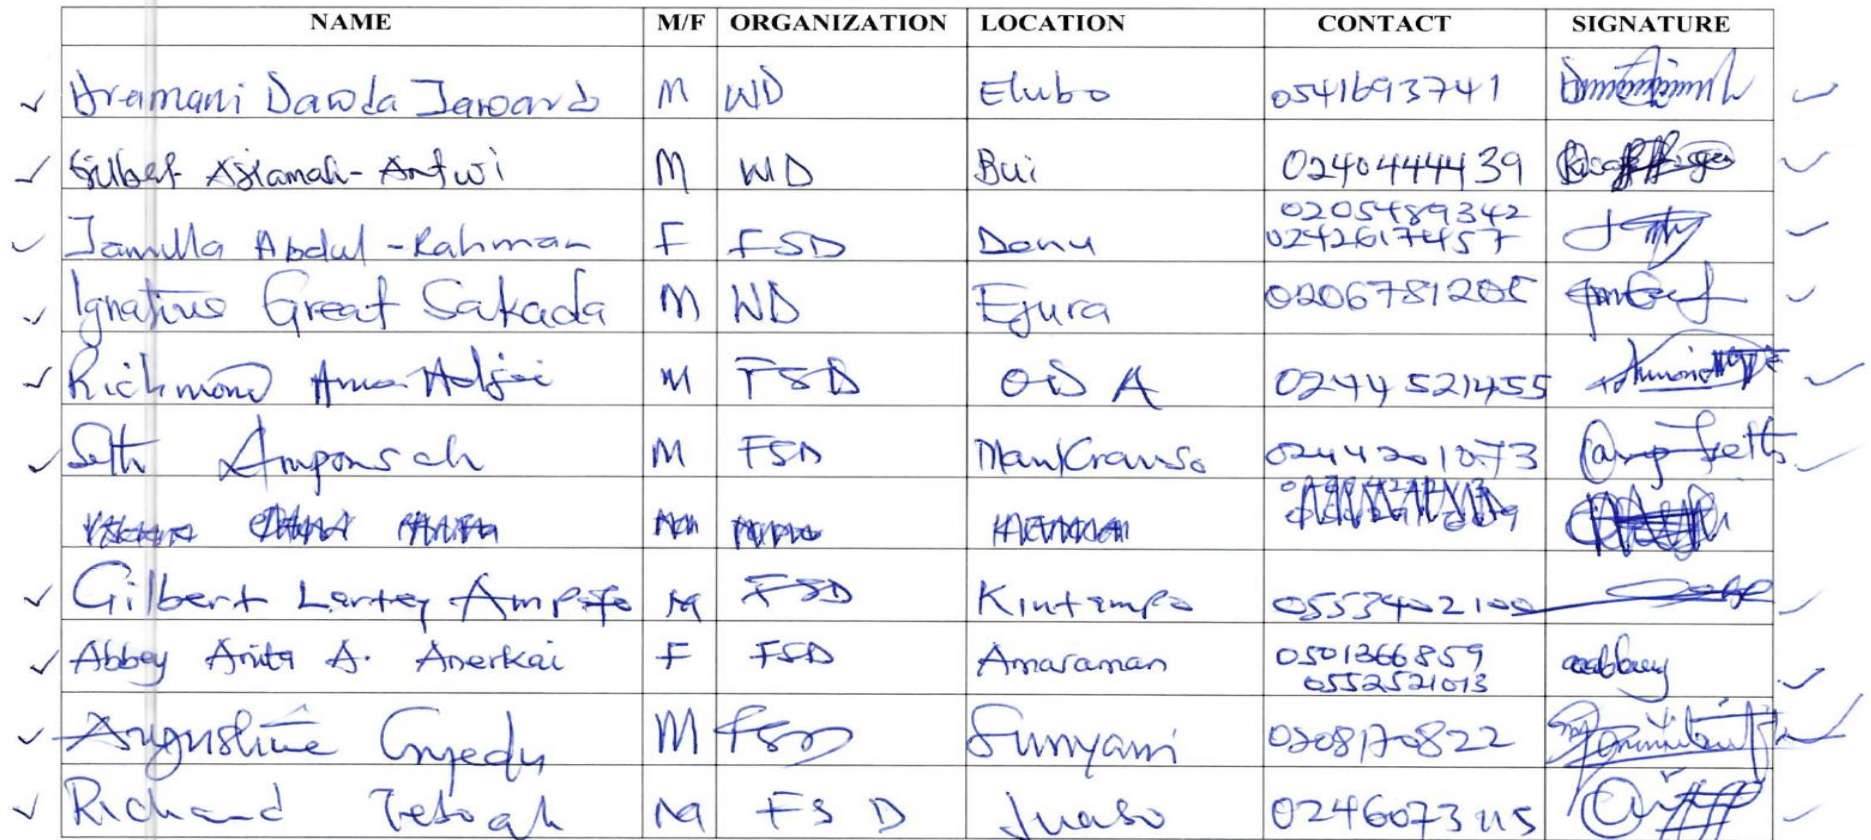 NAME M/F ORGANIZATION LOCATION CONTACT SIGNATURE
Dawda M WD Elubo 0541693741
Gilbert Asiamah-Antwi M WD Bui 0240444439
0205489342
Jamilla Abdul-Rahman F FSD Donu 0242617457
Ignatius Great Sakada M WD Ejura 0206781205
Richmond M FSD 0244521455
Seth Amponsah M FSD Mankranso 0244201073
Gilbert Lartey M FSD Kintampo 0553402100
Abbey Anita A. Anerkai F FSD Amaraman 0501366859 aabbey
0552521013
Augustine Gyedu M FSD Sunyani 0208170822
Richard Teboah M FSD Juaso